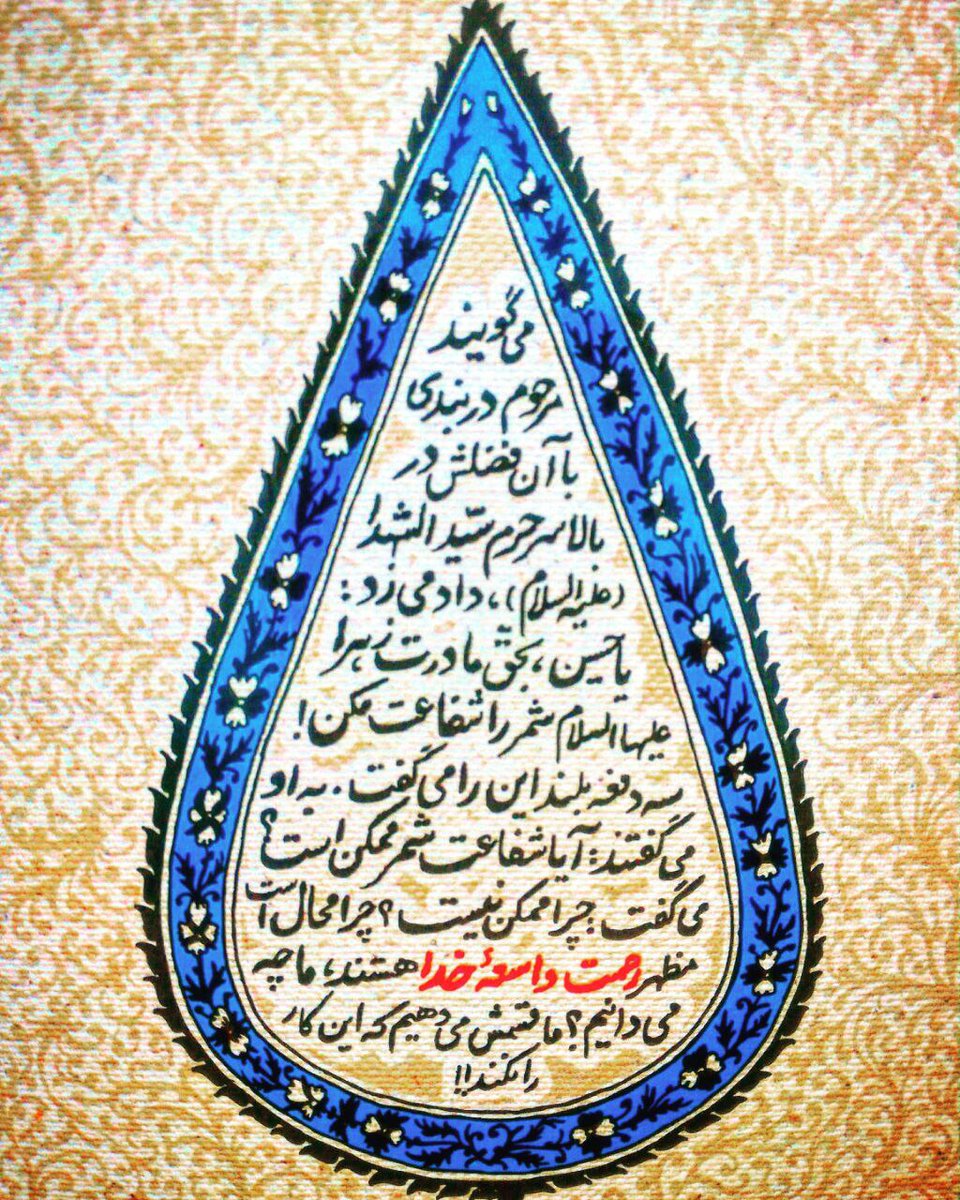 می‌گویند
مرحوم دربندی
با آن فضلش در
بالا سر حرم سیّد الشهدا
(علیه السلام)، داد می زد:
یا حسین، بحقّ مادرت زهرا
علیها السلام شمر را شفاعت مکن!
سه دفعه بلند این را می گفت. به او
می گفتند: آیا شفاعت شمر ممکن است؟
می گفت: چرا ممکن نیست؟ چرا محال است
مظهر رحمت واسعهٔ خدا هستند، ما چه
می دانیم؟ ما قسمش می دهیم که این کار
را نکند!!